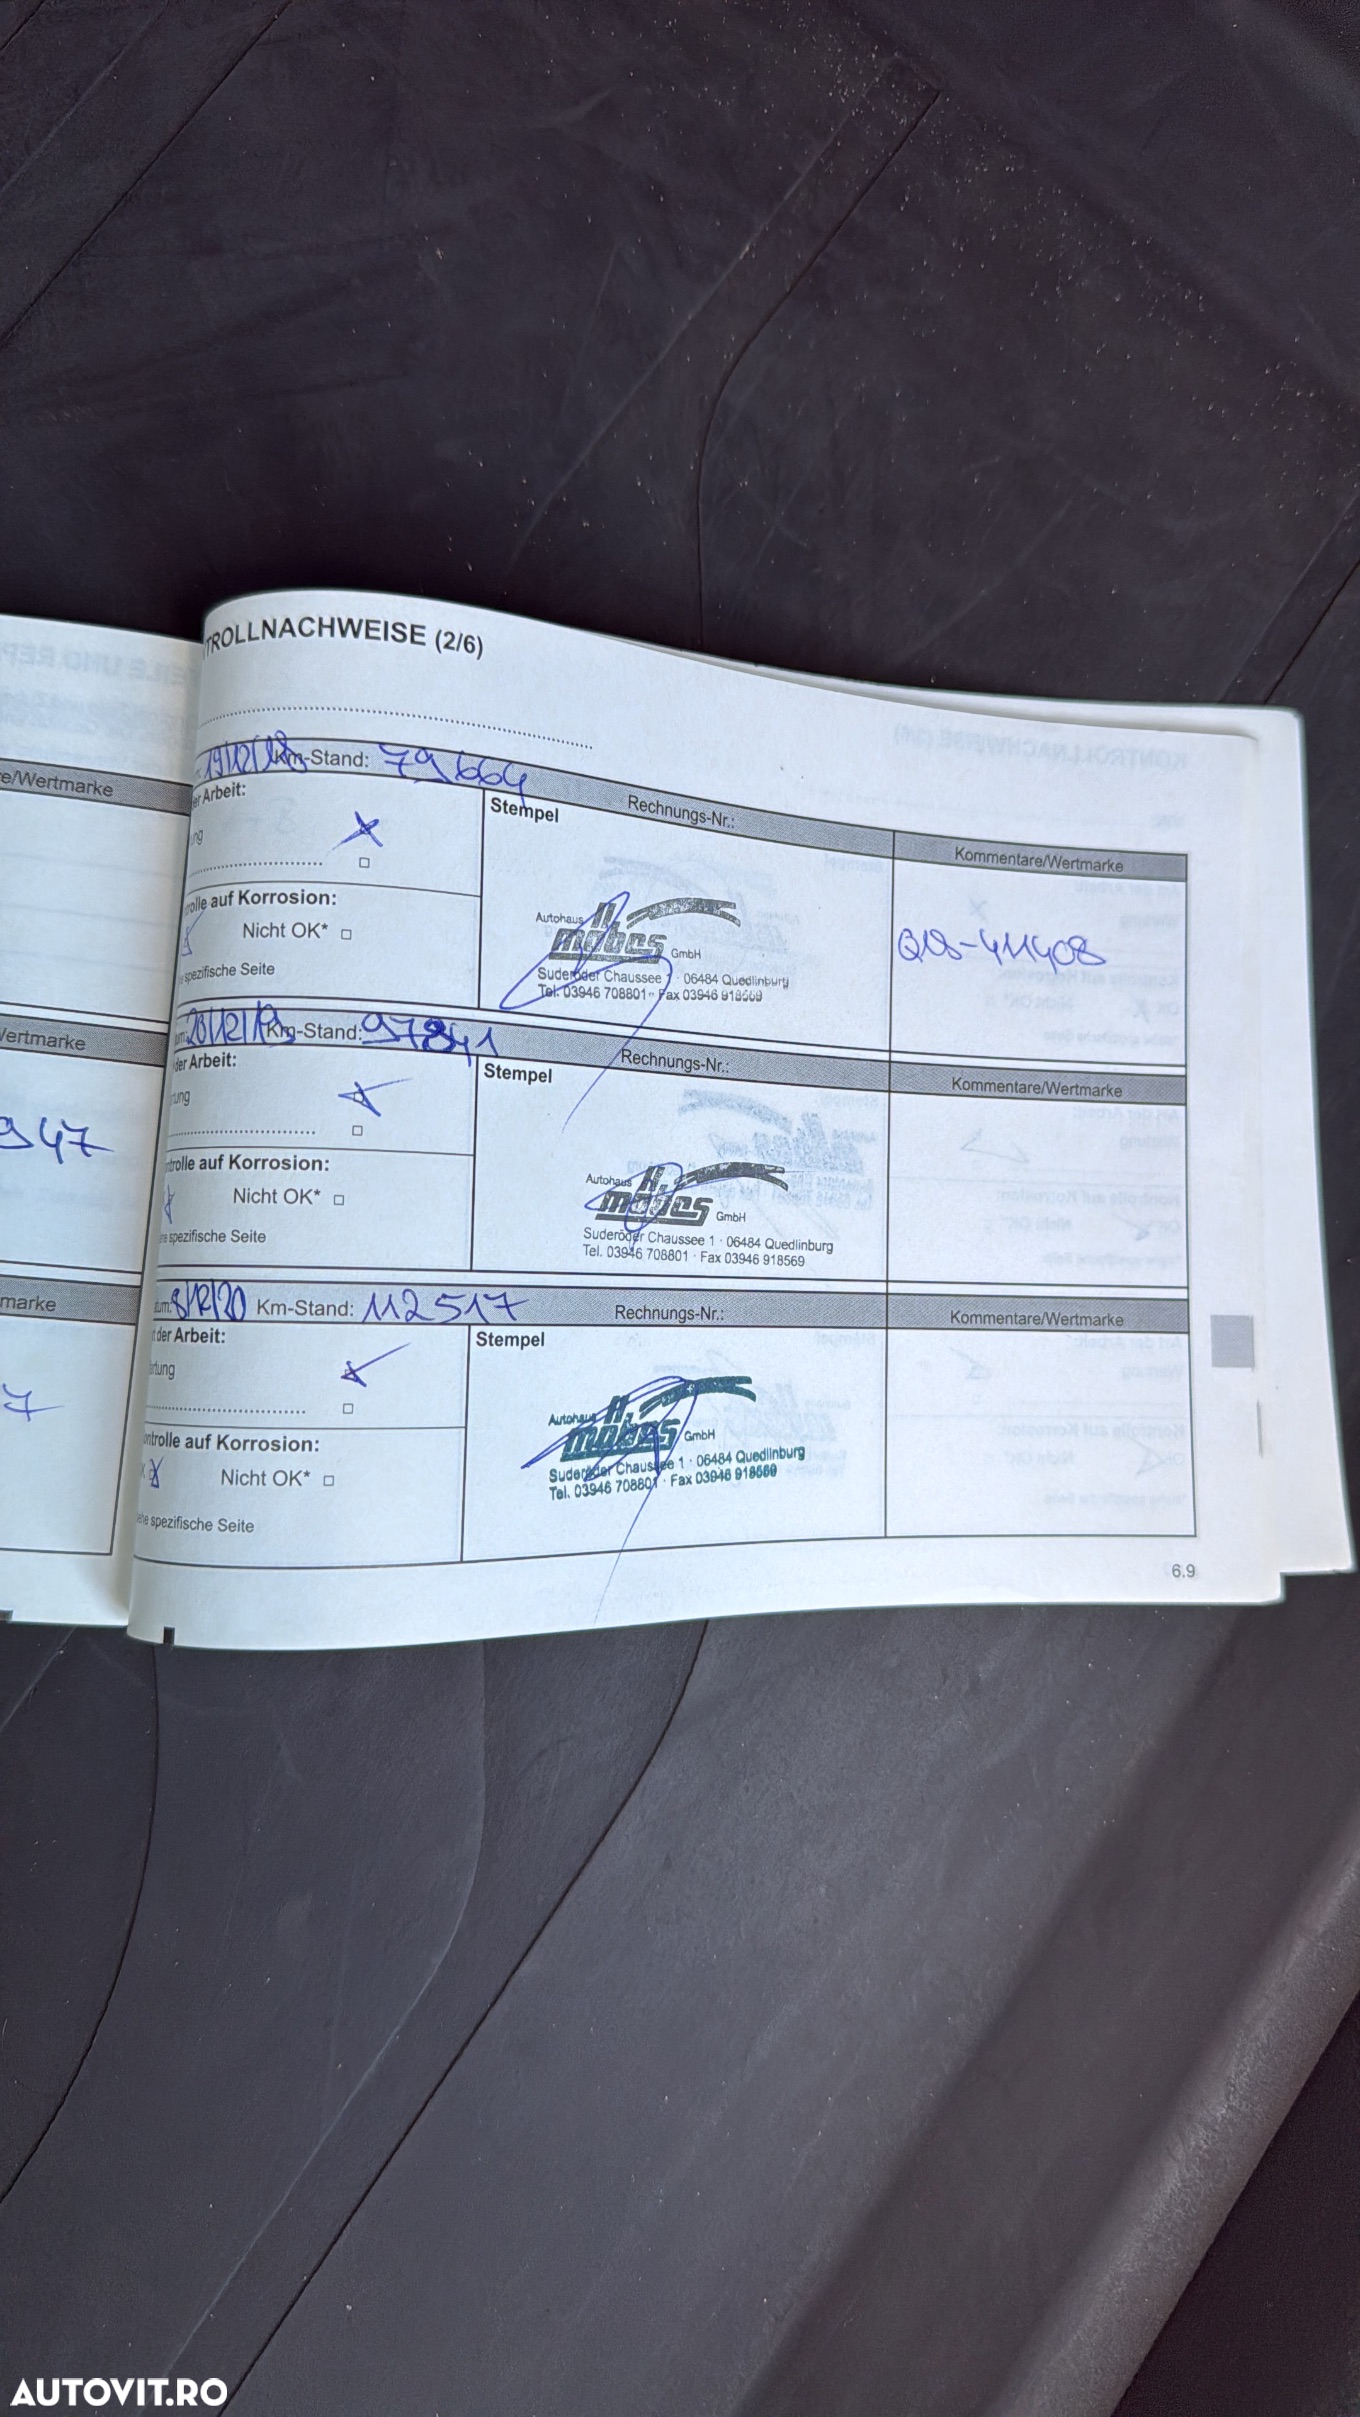 TROLLNACHWEISE (2/6)
e/Wertmarke
19/12/18 Km-Stand: 79664
Rechnungs-Nr.:
Kommentare/Wertmarke
er Arbeit:
Stempel
ng
rolle auf Korrosion:
Nicht OK*
spezifische Seite
Autohaus H. möbes GmbH
Suderöder Chaussee 1 · 06484 Quedlinburg
Tel. 03946 708801 · Fax 03946 918569
Wertmarke
947
20/12/19 Km-Stand: 97841
Rechnungs-Nr.:
Kommentare/Wertmarke
der Arbeit:
Stempel
tung
ntrolle auf Korrosion:
Nicht OK*
he spezifische Seite
Autohaus H. möbes GmbH
Suderöder Chaussee 1 · 06484 Quedlinburg
Tel. 03946 708801 · Fax 03946 918569
marke
7
tum: 8/12/20 Km-Stand: 112517
Rechnungs-Nr.:
Kommentare/Wertmarke
t der Arbeit:
Stempel
artung
ontrolle auf Korrosion:
Nicht OK*
ehe spezifische Seite
Autohaus H. möbes GmbH
Suderöder Chaussee 1 · 06484 Quedlinburg
Tel. 03946 708801 · Fax 03946 918569
6.9
AUTOVIT.RO